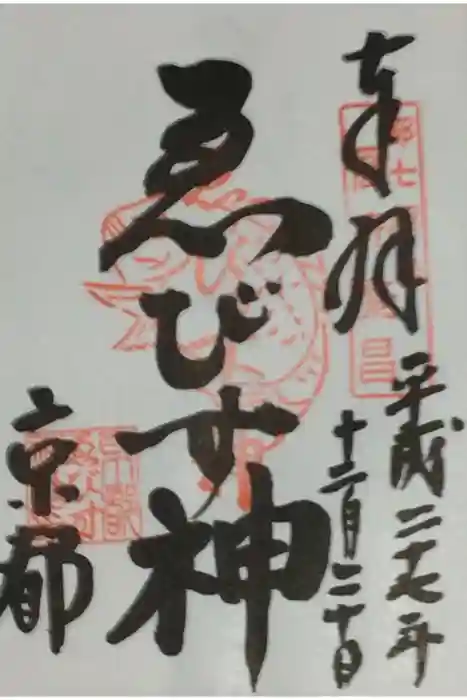 奉拝
平成二十七年
十二月二十日
ゑびす神
京都